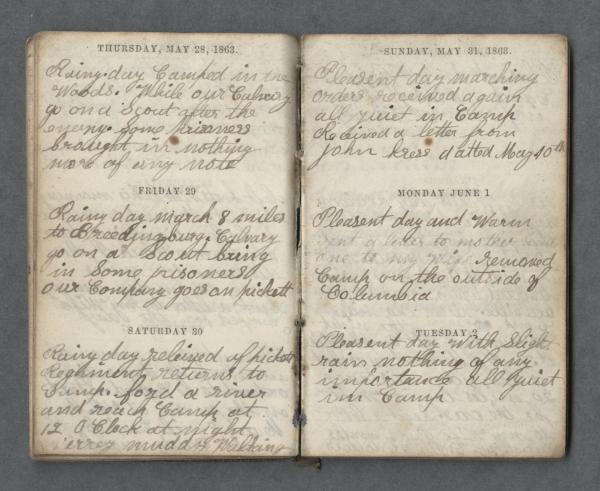 THURSDAY, MAY 28, 1863.
Rainy day Camped in the
Woods. While our Calvary
go on a Scout after the
enemy. some prisoners
brought in nothing
more of any note
FRIDAY 29
Rainy day march 8 miles
to Breedingburg. Calvary
go on a Scout bring
in Some prisoners
our Company goes on pickett
SATURDAY 30
Rainy day releived of picket
Regiment returns to
Camp. ford a river
and reach Camp at
12 O Clock at night
verrey muddy Walking
SUNDAY, MAY 31, 1863.
Pleasent day marching
orders received again
all quiet in Camp
Received a letter from
John Kress datted May 10th
MONDAY JUNE 1
Pleasent day and Warm
Sent a letter to mother
one to my removed
Camp on the outside of
Columbia
TUESDAY 2
Pleasent day With Slight
rain nothing of any
importance all Quiet
in Camp